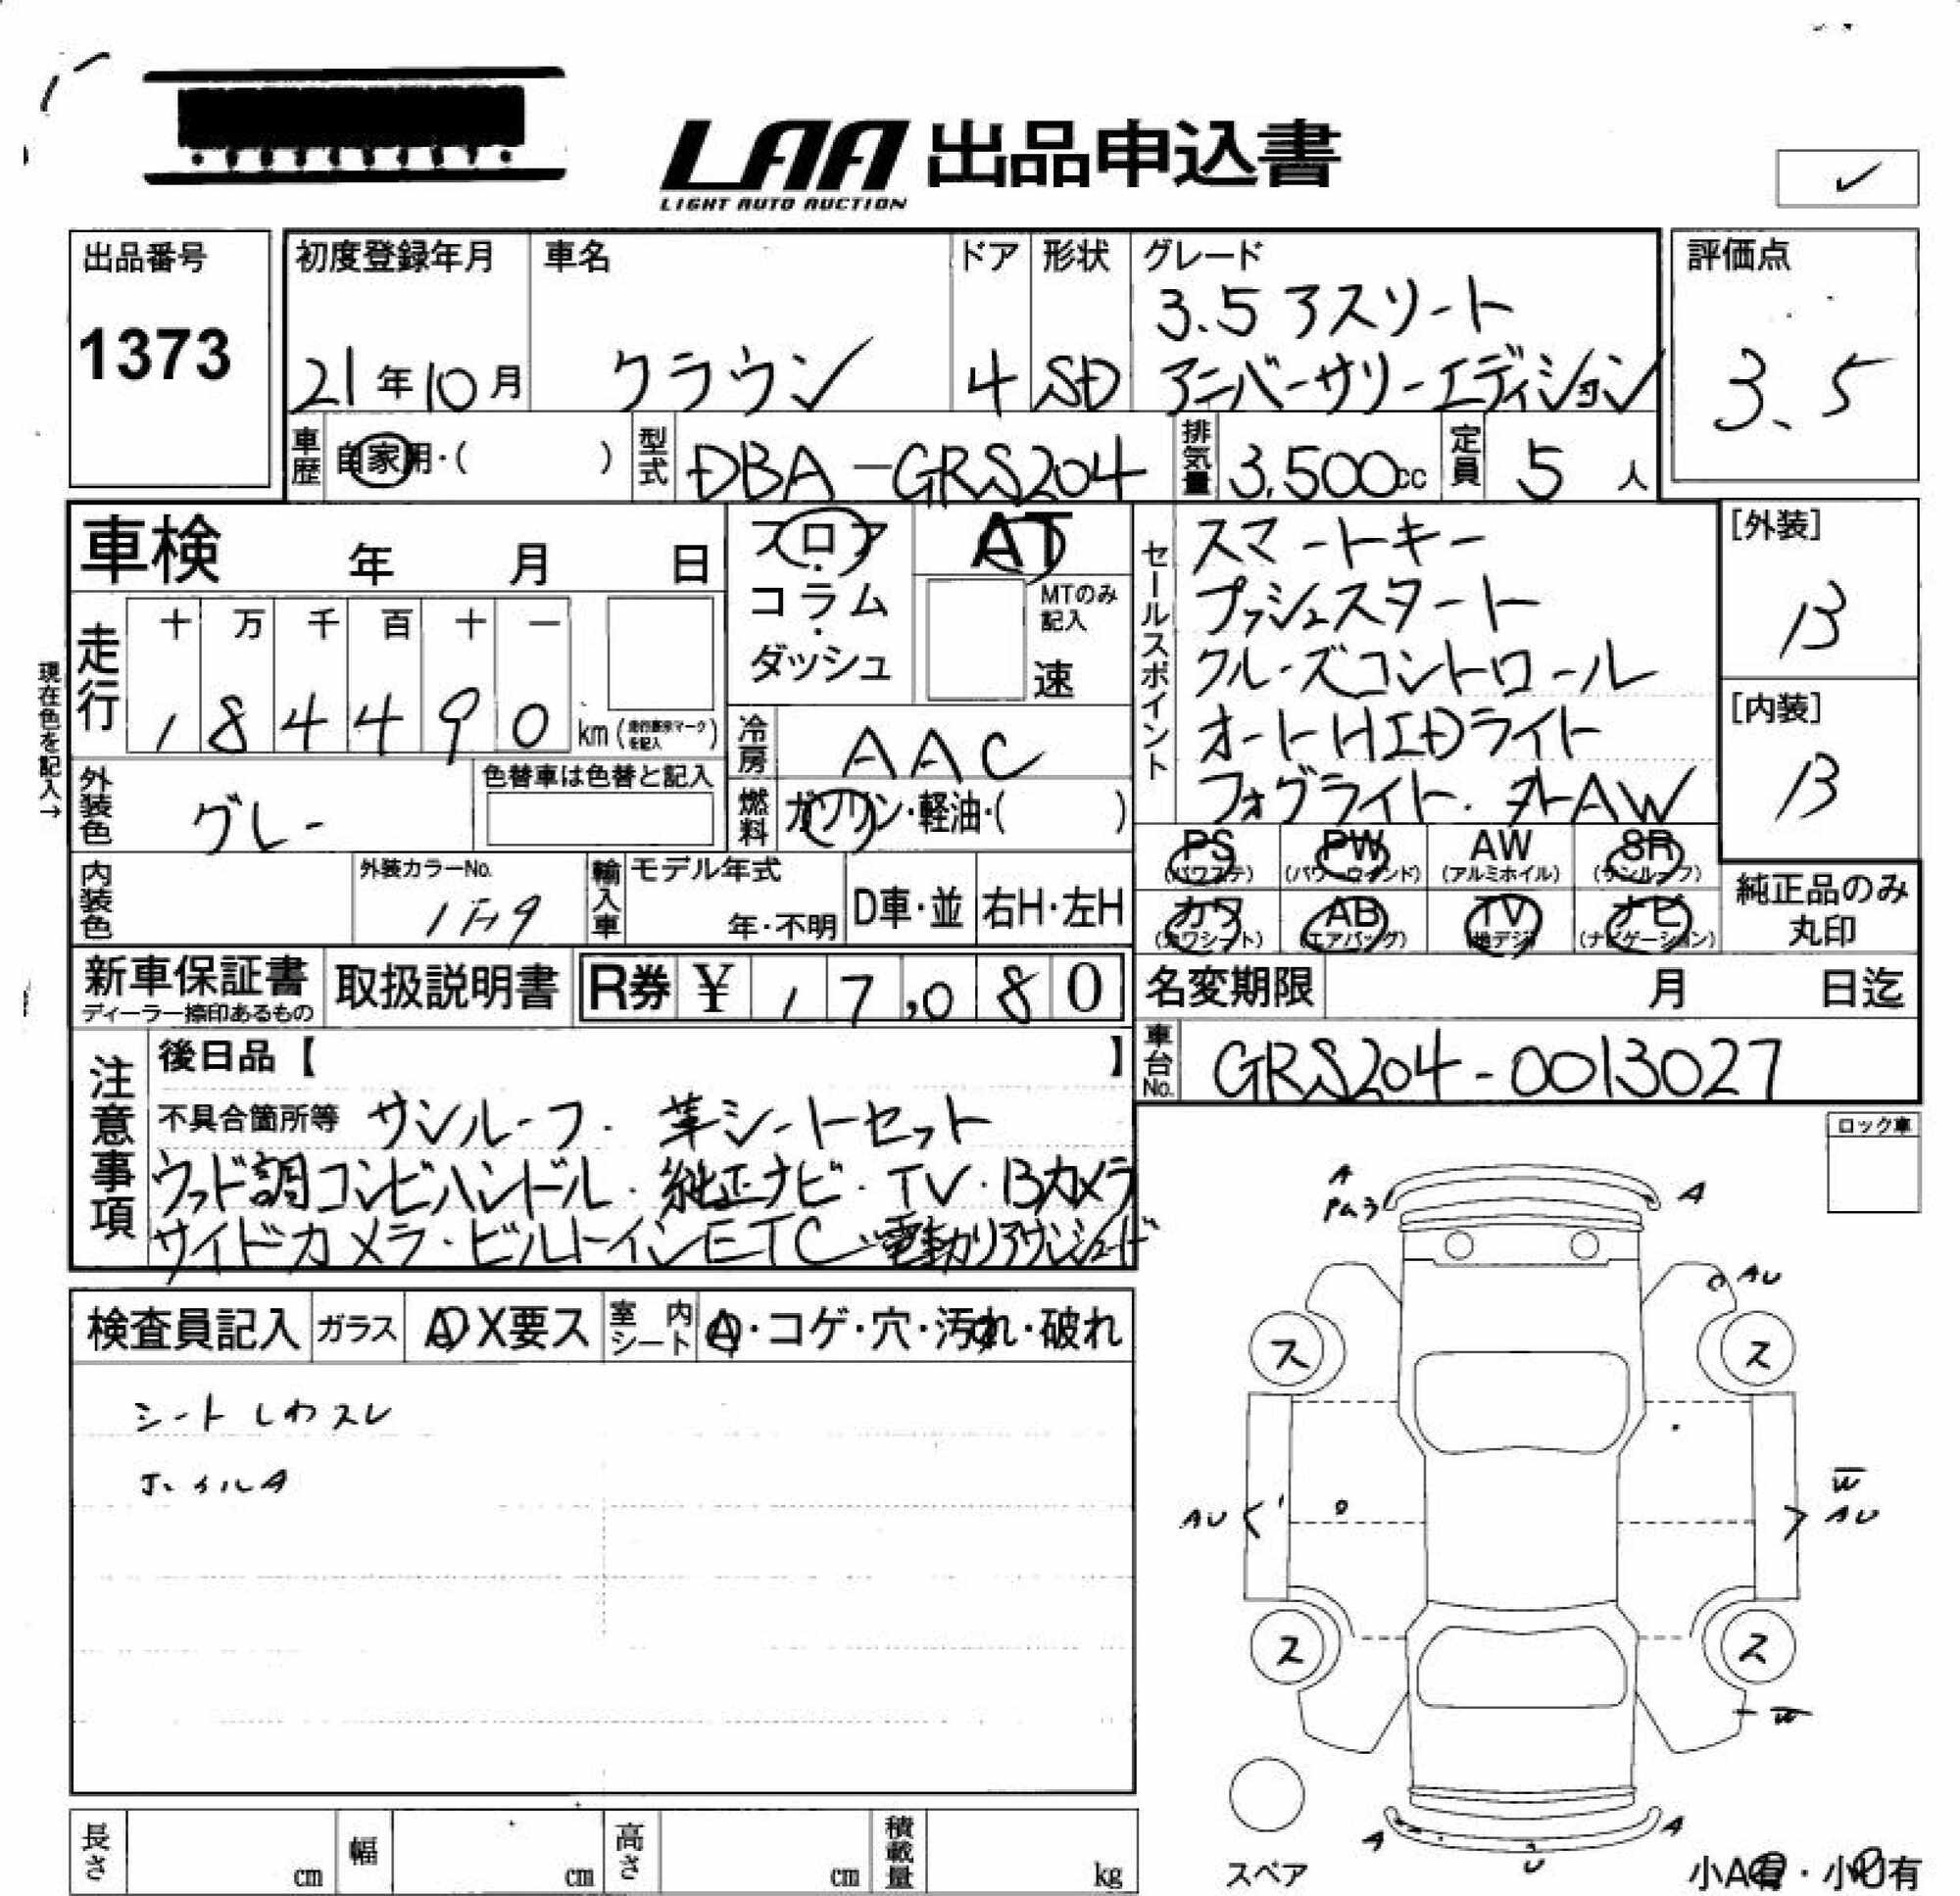 LAA 出品申込書
LIGHT AUTO AUCTION
✓
出品番号
1373
初度登録年月
21年10月
車名
クラウン
ドア
4
形状
SD
グレード
3.5 アスリート
アニバーサリーエディション
評価点
3.5
車歴
自家用・( )
型式
DBA-GRS204
排気量
3,500cc
定員
5人
車検 年 月 日
フロア・コラム・ダッシュ
AT
MTのみ記入
速
セールスポイント
スマートキー
プッシュスタート
クルーズコントロール
オートHIDライト
フォグライト.
AW
[外装]
B
[内装]
B
現在色を記入→
走行
十 万 千 百 十 一
1 8 4 4 9 0 km
冷房
AAC
外装色
グレー
色替車は色替と記入
燃料
ガソリン・軽油・( )
内装色
外装カラーNo.
輸入車
モデル年式
年・不明
D車・並
右H・左H
PS
(パワステ)
PW
(パワーウインド)
AW
(アルミホイル)
SR
(サンルーフ)
カワ
(カワシート)
AB
(エアバッグ)
TV
(地デジ)
ナビ
(ナビゲーション)
純正品のみ
丸印
新車保証書
ディーラー捺印あるもの
取扱説明書
R券 ¥ 17,080
名変期限 月 日迄
車台No.
GRS204-0013027
注意事項
後日品【 】
不具合箇所等 サンルーフ. 革シートセット
ウッド調コンビハンドル. 純正ナビ・TV・Bカメラ
サイドカメラ・ビルトインETC・電動リアサンシェード
ロック車
検査員記入
ガラス
A)X要ス
室内シート
A・コゲ・穴・汚れ・破れ
シートしわスレ
ホイルA
A
A
AU
ス
ス
AU
W
AU
ス
ス
W
A
A
U
スペア
小A有・小U有
長さ cm
幅 cm
高さ cm
積載量 kg